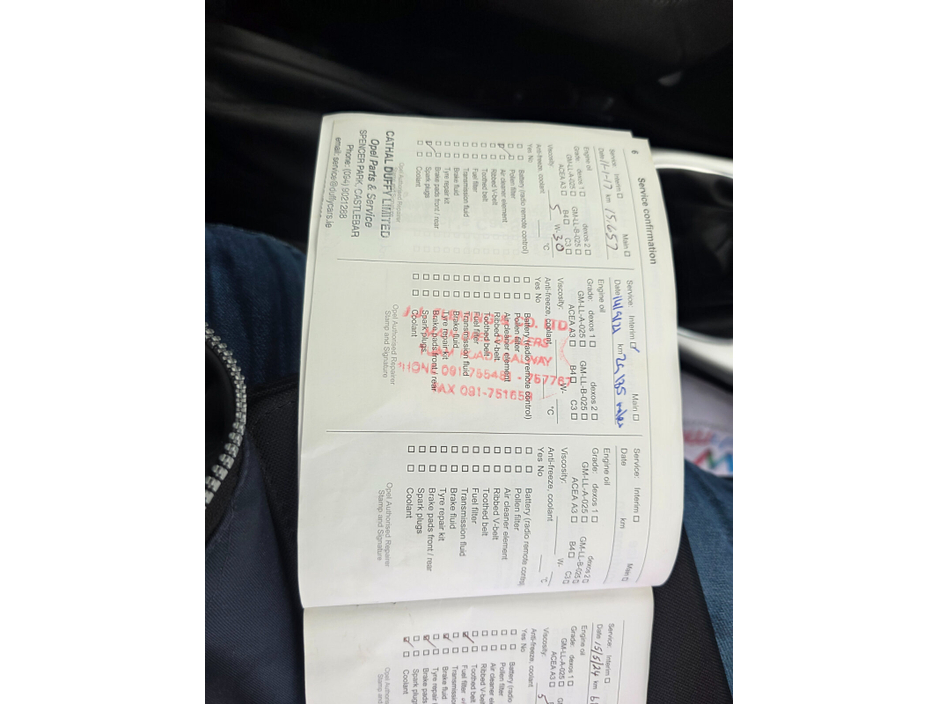 6
Service confirmation
Service: Interim ☐ Main ☐
Date 11-1-17 km 15,657
Engine oil
Grade: dexos 1 ☐ dexos 2 ☐
GM-LL-A-025 ☐ GM-LL-B-025 ☐
ACEA A3 ☐ B4 ☐ C3 ☐
Viscosity: 5 W-30
Anti-freeze, coolant °C
Yes No
Battery (radio remote control)
Pollen filter
Air cleaner element
Ribbed V-belt
Toothed belt
Fuel filter
Transmission fluid
Brake fluid
Tyre repair kit
Brake pads front / rear
Spark plugs
Coolant
Opel Authorised Repairer
CATHAL DUFFY LIMITED
Opel Parts & Service
SPENCER PARK, CASTLEBAR
Phone: (094) 9021288
email: service@duffycars.ie
Service: Interim ☑ Main ☐
Date km
Engine oil
Grade: dexos 1 ☐ dexos 2 ☐
GM-LL-A-025 ☐ GM-LL-B-025 ☐
ACEA A3 ☐ B4 ☐ C3 ☐
Viscosity: W-
Anti-freeze, coolant °C
Yes No
Battery (radio remote control)
Pollen filter
Air cleaner element
Ribbed V-belt
Toothed belt
Fuel filter
Transmission fluid
Brake fluid
Tyre repair kit
Brake pads front / rear
Spark plugs
Coolant
Opel Authorised Repairer
Stamp and Signature
FAX 091-75165
Service: Interim ☐ Main ☐
Date km
Engine oil
Grade: dexos 1 ☐ dexos 2 ☐
GM-LL-A-025 ☐ GM-LL-B-025 ☐
ACEA A3 ☐ B4 ☐ C3 ☐
Viscosity: W-
Anti-freeze, coolant °C
Yes No
Battery (radio remote control)
Pollen filter
Air cleaner element
Ribbed V-belt
Toothed belt
Fuel filter
Transmission fluid
Brake fluid
Tyre repair kit
Brake pads front / rear
Spark plugs
Coolant
Opel Authorised Repairer
Stamp and Signature
Service: Interim ☐
Date 15/5/24 km
Engine oil
Grade: dexos 1 ☐
GM-LL-A-025 ☐
ACEA A3 ☐
Viscosity: 5
Anti-freeze, coolant
Yes No
Battery (radio
Pollen filter
Air cleaner
Ribbed V-
Toothed belt
Fuel filter
Transmission
Brake fluid
Tyre repair
Brake pads
Spark plug
Coolant
Opel Auth
Stamp an